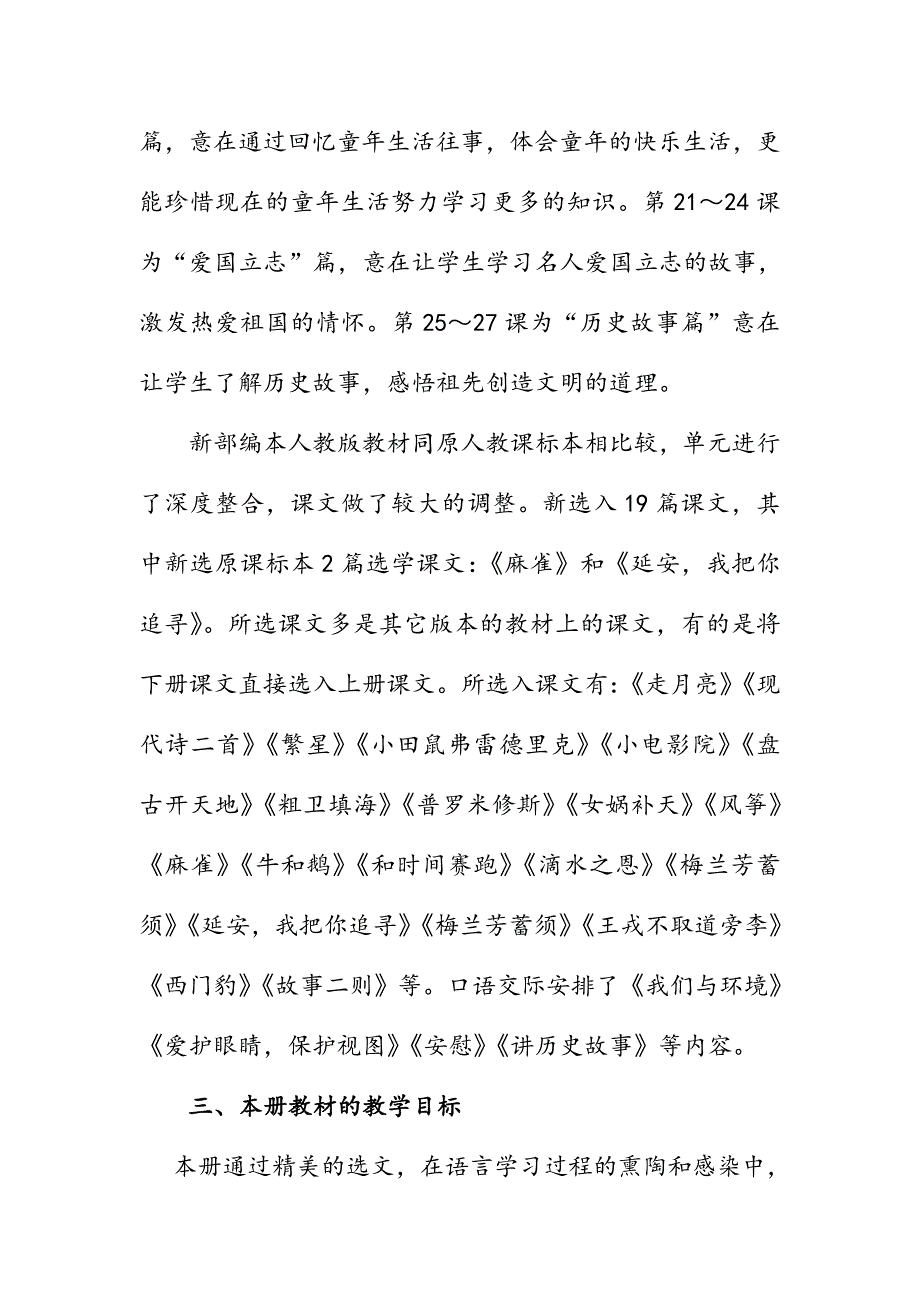 篇，意在通过回忆童年生活往事，体会童年的快乐生活，更
能珍惜现在的童年生活努力学习更多的知识。第21～24课
为“爱国立志”篇，意在让学生学习名人爱国立志的故事，
激发热爱祖国的情怀。第25～27课为“历史故事篇”意在
让学生了解历史故事，感悟祖先创造文明的道理。
新部编本人教版教材同原人教课标本相比较，单元进行
了深度整合，课文做了较大的调整。新选入19篇课文，其
中新选原课标本2篇选学课文：《麻雀》和《延安，我把你
追寻》。所选课文多是其它版本的教材上的课文，有的是将
下册课文直接选入上册课文。所选入课文有：《走月亮》《现
代诗二首》《繁星》《小田鼠弗雷德里克》《小电影院》《盘
古开天地》《粗卫填海》《普罗米修斯》《女娲补天》《风筝》
《麻雀》《牛和鹅》《和时间赛跑》《滴水之恩》《梅兰芳蓄
须》《延安，我把你追寻》《梅兰芳蓄须》《王戎不取道旁李》
《西门豹》《故事二则》等。口语交际安排了《我们与环境》
《爱护眼睛，保护视图》《安慰》《讲历史故事》等内容。
三、本册教材的教学目标
本册通过精美的选文，在语言学习过程的熏陶和感染中，